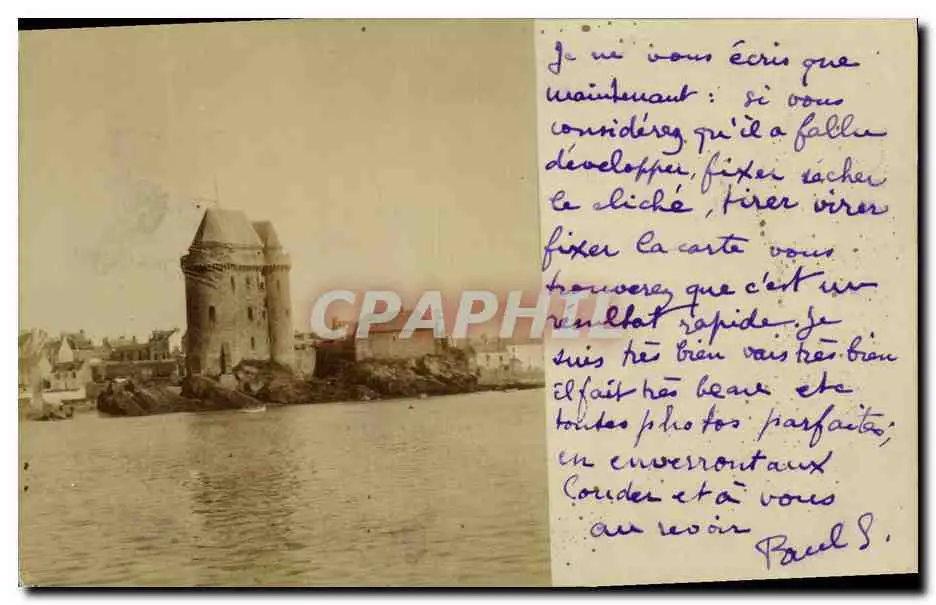 Je ne vous écris que
maintenant : si vous
considérez qu'il a fallu
développer, fixer sécher
le cliché, tirer virer
fixer la carte vous
trouverez que c'est un
résultat rapide. Je
suis très bien vais très bien
il fait très beau etc
toutes photos parfaites,
en enverront aux
et à vous
au revoir
Paul S.
CPAPHIL